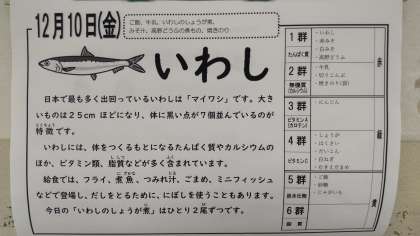 12月10日(金)
ご飯、牛乳、いわしのしょうが煮、
みそ汁、高野どうふの煮もの、焼きのり
いわし
日本で最も多く出回っているいわしは「マイワシ」です。大き
いものは25cm ほどになり、体に黒い点が7個並んでいるのが
とくちょう
特徴です。
いわしには、体をつくるもとになるたんぱく質やカルシウムの
ほか、ビタミン類、脂質などが多く含まれています。
給食では、フライ、煮魚、つみれ汁、ごまめ、ミニフィッシュ
などで登場し、だしをとるために、にぼしを使うこともあります。
今日の「いわしのしょうが煮」はひとり2尾ずつです。
1群
たんぱく質
・いわし
・赤みそ
・白みそ
・高野どうふ
2群
無機質
(カルシウム)
・牛乳
・切りこんぶ
・焼きのり
赤
3群
ビタミンA
(カロテン)
・にんじん
4群
ビタミンC
・しょうが
・はくさい
・だいこん
・白ねぎ
緑
5群
炭水化物
・ご飯
・砂糖
・じゃがいも
6群
脂質
黄